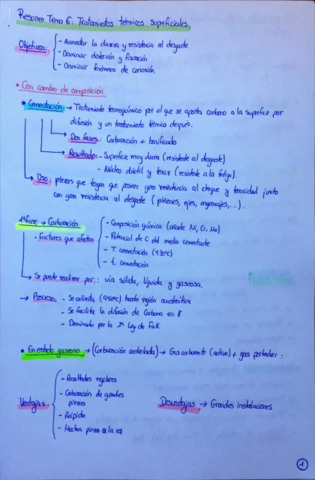 Resumen Tema 6: Tratamientos térmicos superficiales.
Objetivos:
- Aumentar la dureza y resistencia al desgaste
- Disminuir distorsión y fisuración
- Disminuir fenómenos de corrosión
• Con cambio de composición
• Cementación → Tratamiento termoquímico por el que se aporta carbono a la superficie por
difusión y un tratamiento térmico después.
Dos fases: Carburación + temple
Resultados: - Superficie muy dura (resistente al desgaste)
- Núcleo dúctil y tenaz (resiste a la fatiga).
Uso: piezas que tengan que poseer gran resistencia al choque y tenacidad junto
con gran resistencia al desgaste (piñones, ejes, engranajes, ...).
1ª fase → Carburación:
- Factores que afectan
- Composición química (añade Ni, Cr, Mo)
- Potencial de C del medio cementante
- T. cementación (930ºC)
- t. cementación
Se puede realizar por: vía sólida, líquida y gaseosa.
→ Proceso: - Se calienta (950ºC) hasta región austenítica
- Se facilita la difusión de Carbono en γ
- Dominado por la 2ª Ley de Fick
• En estado gaseoso → (Carburación controlada) → Gas carburante (activo) + gas portador:
Ventajas
- Resultados regulares
- Carburación de grandes
piezas
- Rápido
- Muchas piezas a la vez
Desventajas → Grandes instalaciones
1